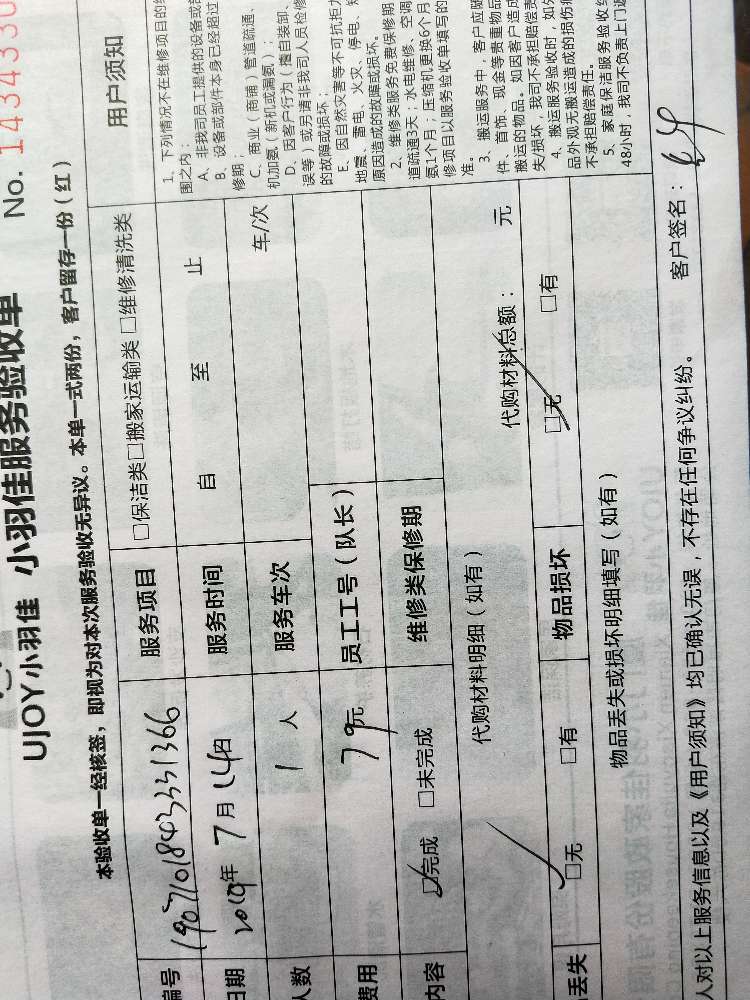 No. 1434330
UJOY小羽佳 小羽佳服务验收单
本验收单一经核签，即视为对本次服务验收无异议。本单一式两份，客户留存一份（红）
编号 1907101843331366 服务项目 □保洁类□搬家运输类 □维修清洗类 用户须知
日期 2019年 7月 14日 服务时间 自 至 止
人数 1 人 服务车次 车/次
费用 79元 员工工号（队长）
内容 □完成 □未完成 维修类保修期
代购材料明细（如有） 代购材料总额： 元
丢失 □无 □有 物品损坏 □无 □有
物品丢失或损坏明细填写（如有）
1、下列情况不在维修项目的
围之内：
A、非我司员工提供的设备或
B、设备或部件本身已经超过
修期；
C、商业（商铺）管道疏通、
机加氨（新机或漏氨）；
D、因客户行为（擅自装卸、
误等）或另请非我司人员检修
的故障或损坏；
E、因自然灾害等不可抗拒力
地震、蓄电、火灾、停电、
原因造成的故障或损坏。
2、维修类服务免费保修期
道疏通3天；水电维修、空调
氨1个月；压缩机更换6个月
修项目以服务验收单填写的
准。
3、搬运服务中，客户应
件、首饰、现金等贵重物品
搬运的物品。如因客户造成
失/损坏，我司不承担赔偿责
4、搬运服务验收时，如
品外观无搬运造成的损伤
不承担赔偿责任。
5、家庭保洁服务验收
48小时，我司不负责上门
人对以上服务信息以及《用户须知》均已确认无误，不存在任何争议纠纷。 客户签名：